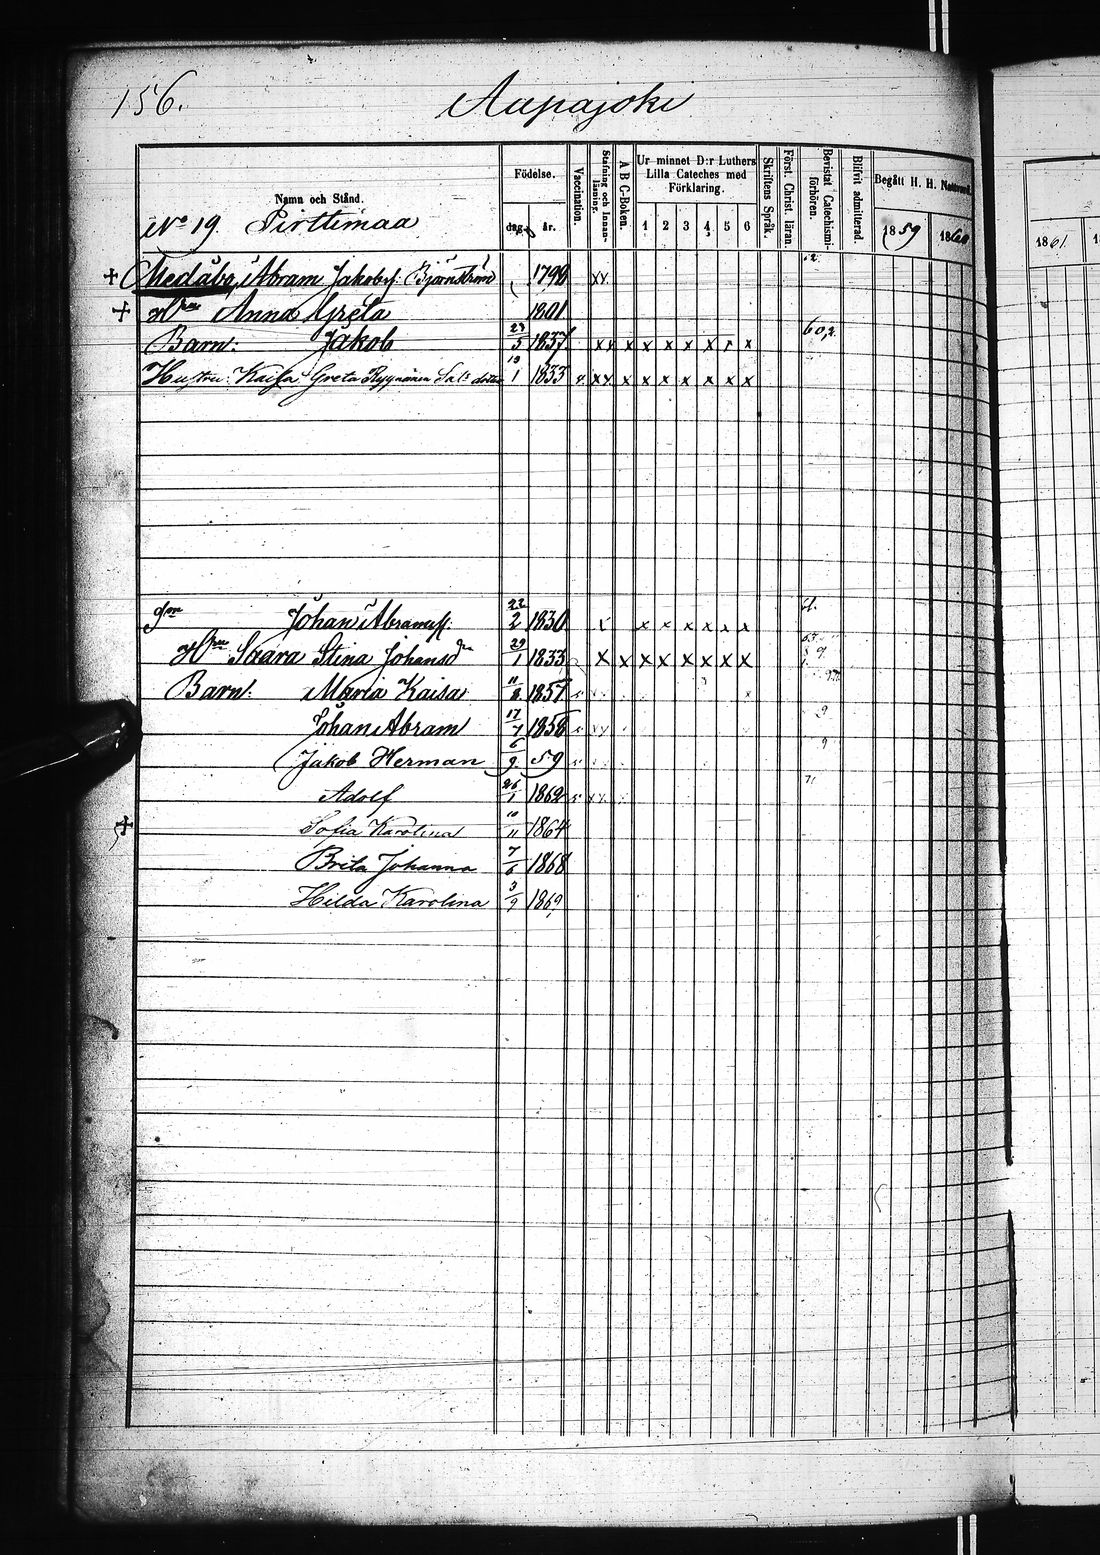 156.
Aapajoki
Namn och Stånd.
Födelse.
dag år.
Vaccination.
Stafning och Innanläsning.
A B C-Boken.
Ur minnet D:r Luthers
Lilla Cateches med
Förklaring.
1 2 3 4 5 6
Skriftens Språk.
Först. Christ. läran.
Bevistat Catechismi-förhören.
Blifvit admitterad.
Begått H. H. Nattvard.
1859 1860
1861
No 19. Pirttimaa
Abram Jakobss. Björnström 1798 xx
Hru Anna Greta 1801
Barn: Jakob 23/5 1837 xx x x x x x x x 60,2
Hustru Kaisa Greta 1 1833 x xx x x x x x x x
Johan Abramss. 22/2 1830 x x x x x x
Hru Saara Stina Johansdr 29/1 1833 x x x x x x x x
Barn: Maria Kaisa 11/8 1857
Johan Abram 17/7 1858
Jakob Herman 6/9 59
Adolf 26/1 1862
Sofia Karolina 10/11 1864
Brita Johanna 7/6 1868
Hilda Karolina 3/9 1869